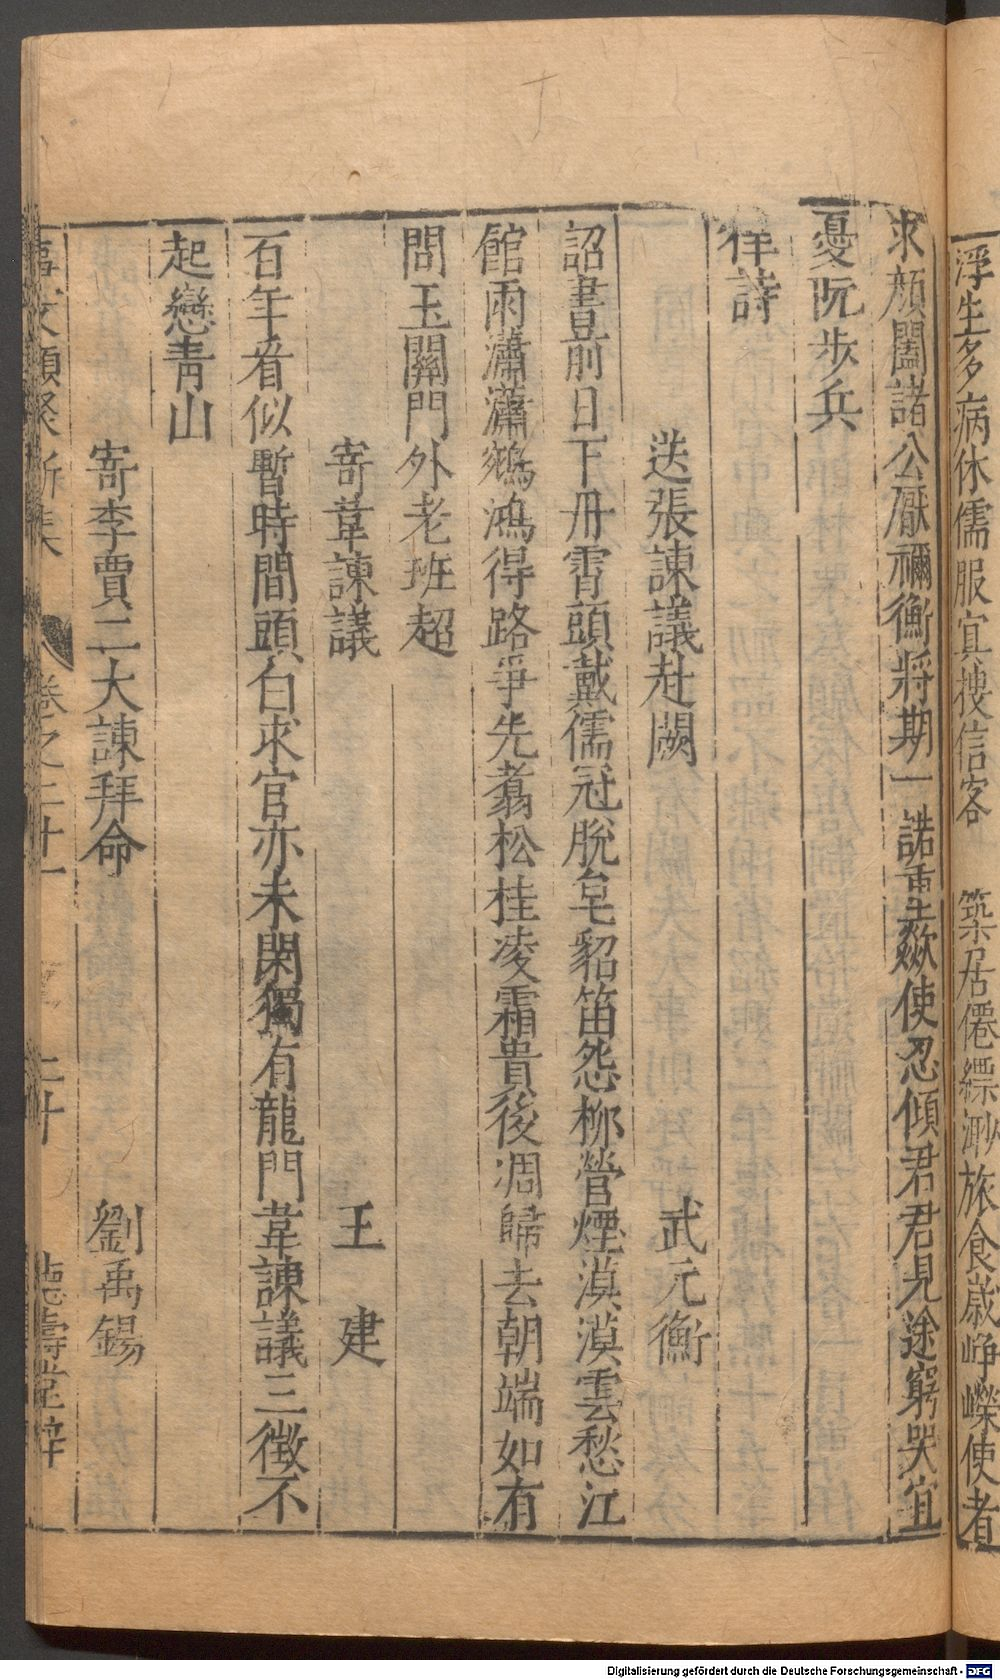 浮生多病休儒服冥搜信客 築居僊縹緲旅食歲崢嶸使者
求顏闔諸公厭禰衡將期一諾重歘使忍傾君君見途窮哭宜
憂阮步兵
律詩
送張諫議赴闕 武元衡
詔書前日下丹霄頭戴儒冠脫皂貂笛怨柳營煙漠漠雲愁江
館雨瀟瀟鵷鴻得路爭先翥松桂凌霜貴後凋歸去朝端如有
問玉關門外老班超
寄韋諫議 王建
百年看似暫時間頭白求官亦未閑獨有龍門韋諫議三徵不
起戀青山
寄李賈二大諫拜命 劉禹錫
事文類聚新集 卷之二十一 二十 德壽堂梓
Digitalisierung gefördert durch die Deutsche Forschungsgemeinschaft - DFG